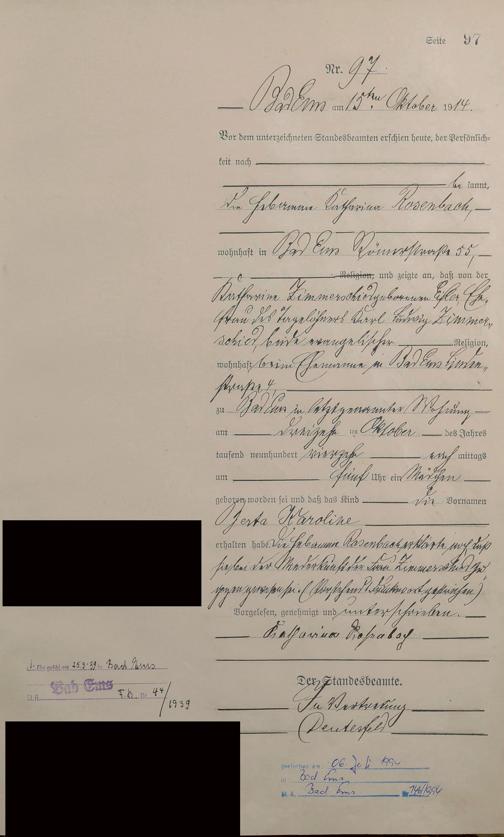 Seite 97
Nr. 97
Bad Ems am 15ten Oktober 1914.
Vor dem unterzeichneten Standesbeamten erschien heute, der Persönlich-
keit nach
be kannt,
die Hebamme Katharina Rosenbach,
wohnhaft in Bad Ems Römerstraße 55,
Religion, und zeigte an, daß von der
Katharine Zimmerschied geborenen Ehe-
frau des Tagelöhners Karl Ludwig Zimmer-
schied, beide evangelischer Religion,
wohnhaft beim Ehemanne in Bad Ems Linden-
straße 4,
zu Bad Ems in letztgenannter Wohnung
am dreizehn ten Oktober des Jahres
tausend neunhundert vierzehn nach mittags
um fünf Uhr ein Mädchen
geboren worden sei und daß das Kind die Vornamen
Berta Karoline
erhalten habe. Die Hebamme Rosenbach erklärte noch, daß
sie bei der Niederkunft der Frau Zimmerschied zu-
gegen gewesen sei. (Vorstehend Druckwort gestrichen)
Vorgelesen, genehmigt und unterschrieben.
Katharina Rosenbach
Der Standesbeamte.
In Vertretung
in Bad Ems
Bad Ems
44/1939
gestorben am 06 Juli
in Bad Ems
Bad Ems